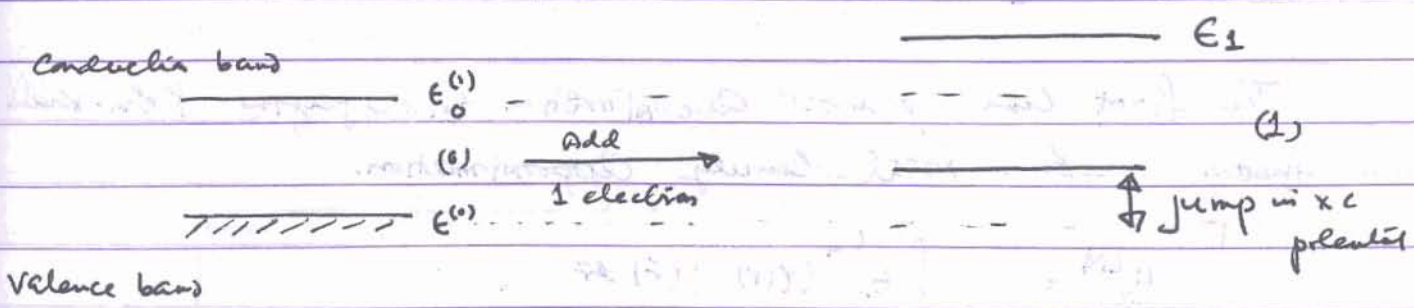 ϵ1
Conduction band
ϵ₀⁽¹⁾
(1)
(0) Add
1 electron
ϵ⁽⁰⁾
jump in xc
potential
Valence band